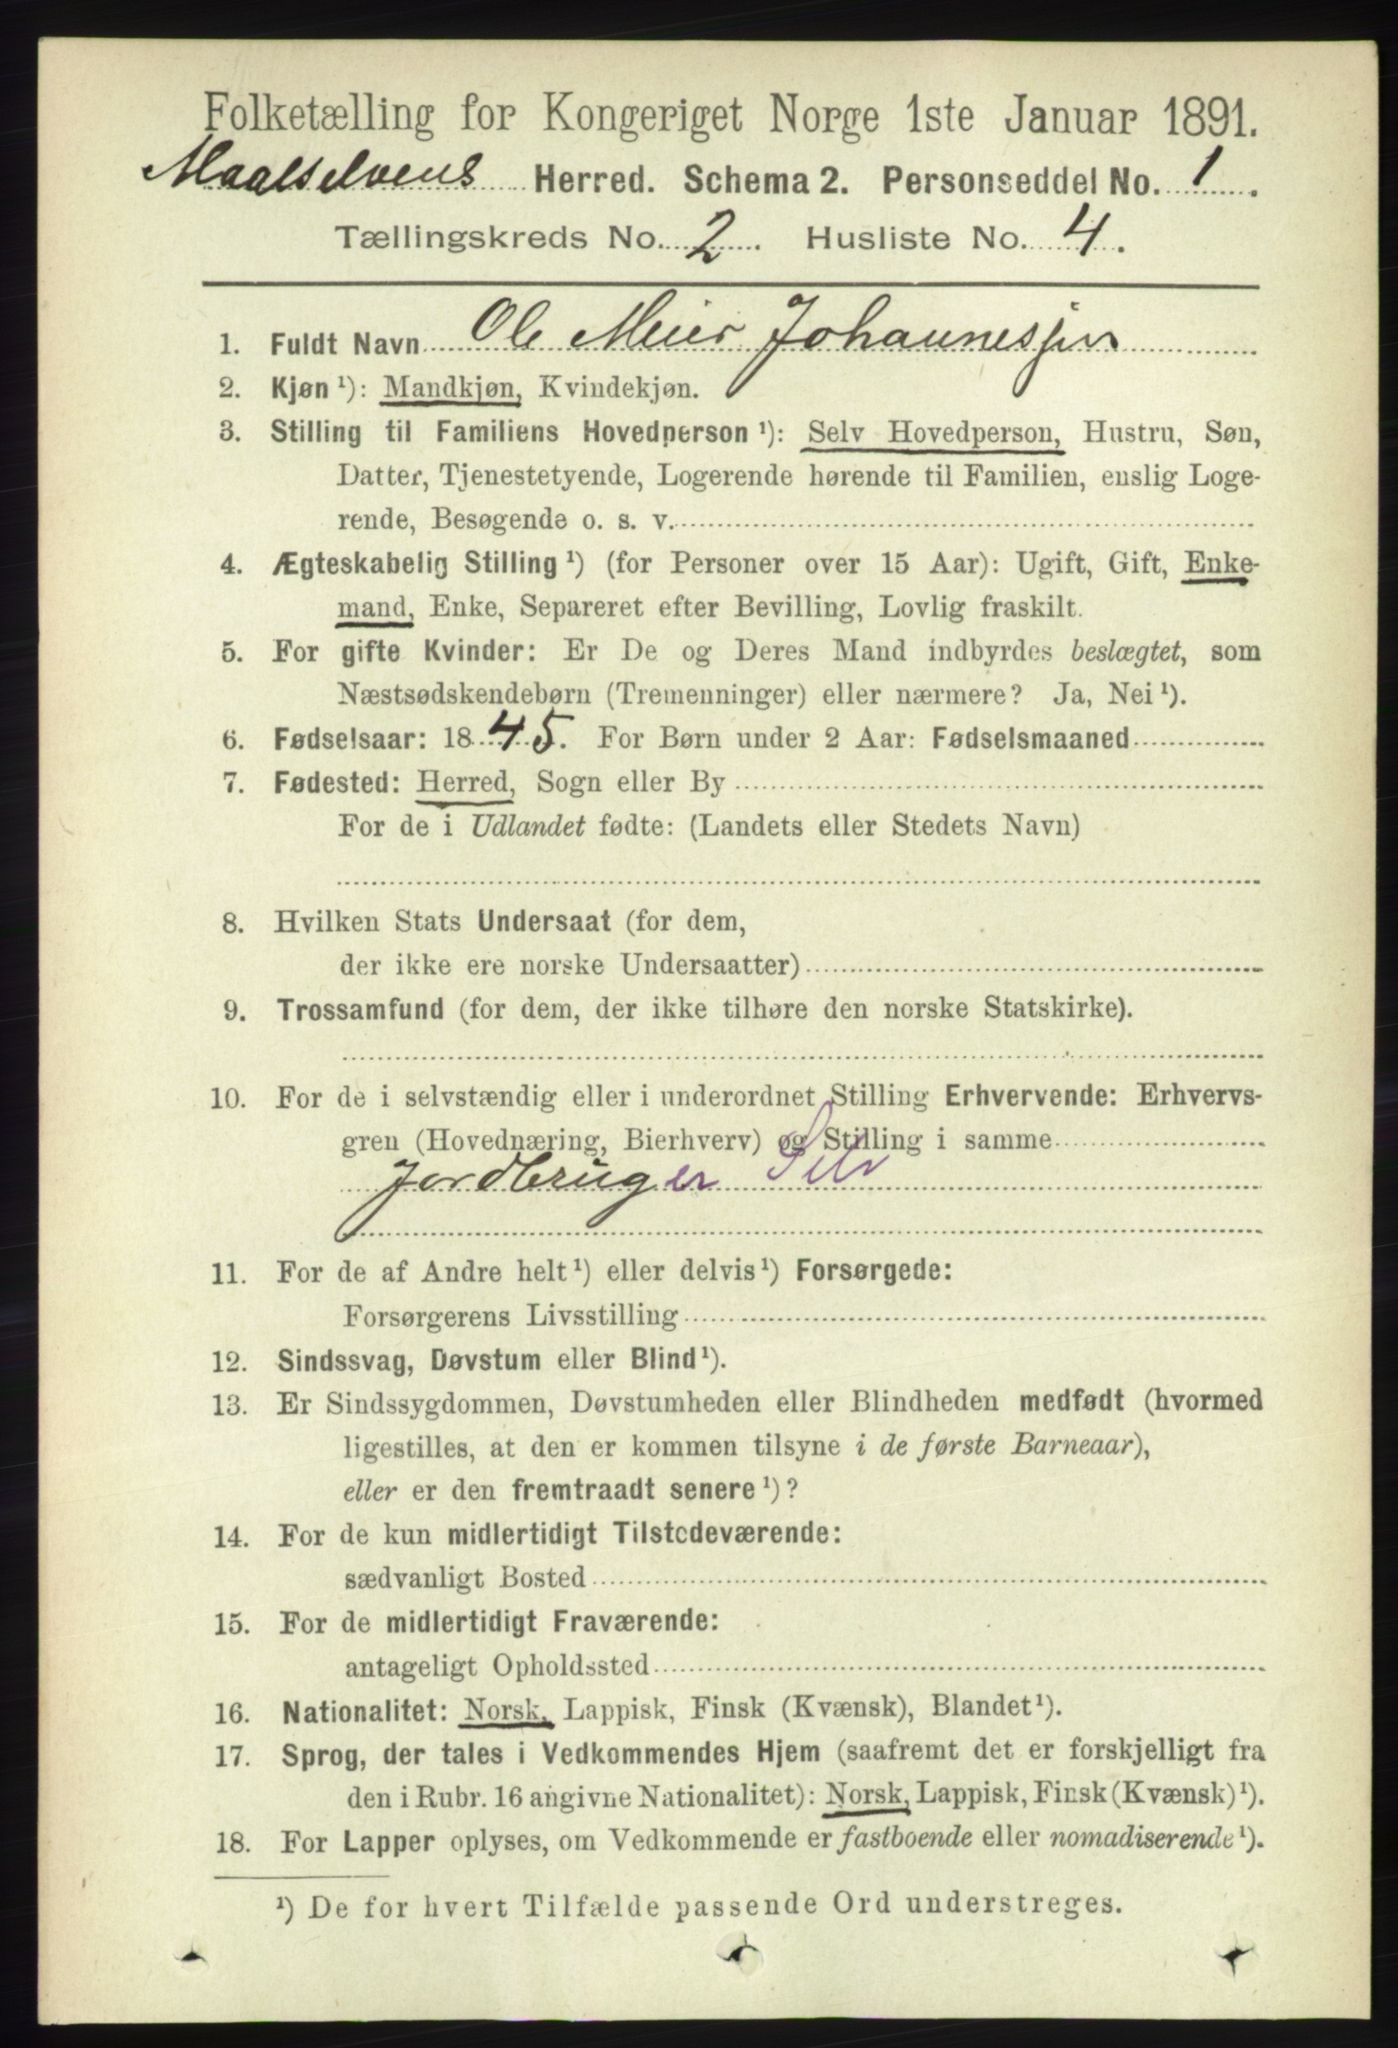 Folketælling for Kongeriget Norge 1ste Januar 1891.
Maalselvens Herred. Schema 2. Personseddel No. 1.
Tællingskreds No. 2. Husliste No. 4.
1. Fuldt Navn Ole Meier Johannesjen
2. Kjøn ¹): Mandkjøn, Kvindekjøn.
3. Stilling til Familiens Hovedperson ¹): Selv Hovedperson, Hustru, Søn,
Datter, Tjenestetyende, Logerende hørende til Familien, enslig Loge-
rende, Besøgende o. s. v.
4. Ægteskabelig Stilling ¹) (for Personer over 15 Aar): Ugift, Gift, Enke-
mand, Enke, Separeret efter Bevilling, Lovlig fraskilt.
5. For gifte Kvinder: Er De og Deres Mand indbyrdes beslægtet, som
Næstsødskendebørn (Tremenninger) eller nærmere? Ja, Nei ¹).
6. Fødselsaar: 1845. For Børn under 2 Aar: Fødselsmaaned
7. Fødested: Herred, Sogn eller By
For de i Udlandet fødte: (Landets eller Stedets Navn)
8. Hvilken Stats Undersaat (for dem,
der ikke ere norske Undersaatter)
9. Trossamfund (for dem, der ikke tilhøre den norske Statskirke).
10. For de i selvstændig eller i underordnet Stilling Erhvervende: Erhvervs-
gren (Hovednæring, Bierhverv) og Stilling i samme
Jordbruger Selv
11. For de af Andre helt ¹) eller delvis ¹) Forsørgede:
Forsørgerens Livsstilling
12. Sindssvag, Døvstum eller Blind ¹).
13. Er Sindssygdommen, Døvstumheden eller Blindheden medfødt (hvormed
ligestilles, at den er kommen tilsyne i de første Barneaar),
eller er den fremtraadt senere ¹)?
14. For de kun midlertidigt Tilstedeværende:
sædvanligt Bosted
15. For de midlertidigt Fraværende:
antageligt Opholdssted
16. Nationalitet: Norsk, Lappisk, Finsk (Kvænsk), Blandet ¹).
17. Sprog, der tales i Vedkommendes Hjem (saafremt det er forskjelligt fra
den i Rubr. 16 angivne Nationalitet): Norsk, Lappisk, Finsk (Kvænsk) ¹).
18. For Lapper oplyses, om Vedkommende er fastboende eller nomadiserende ¹).
¹) De for hvert Tilfælde passende Ord understreges.